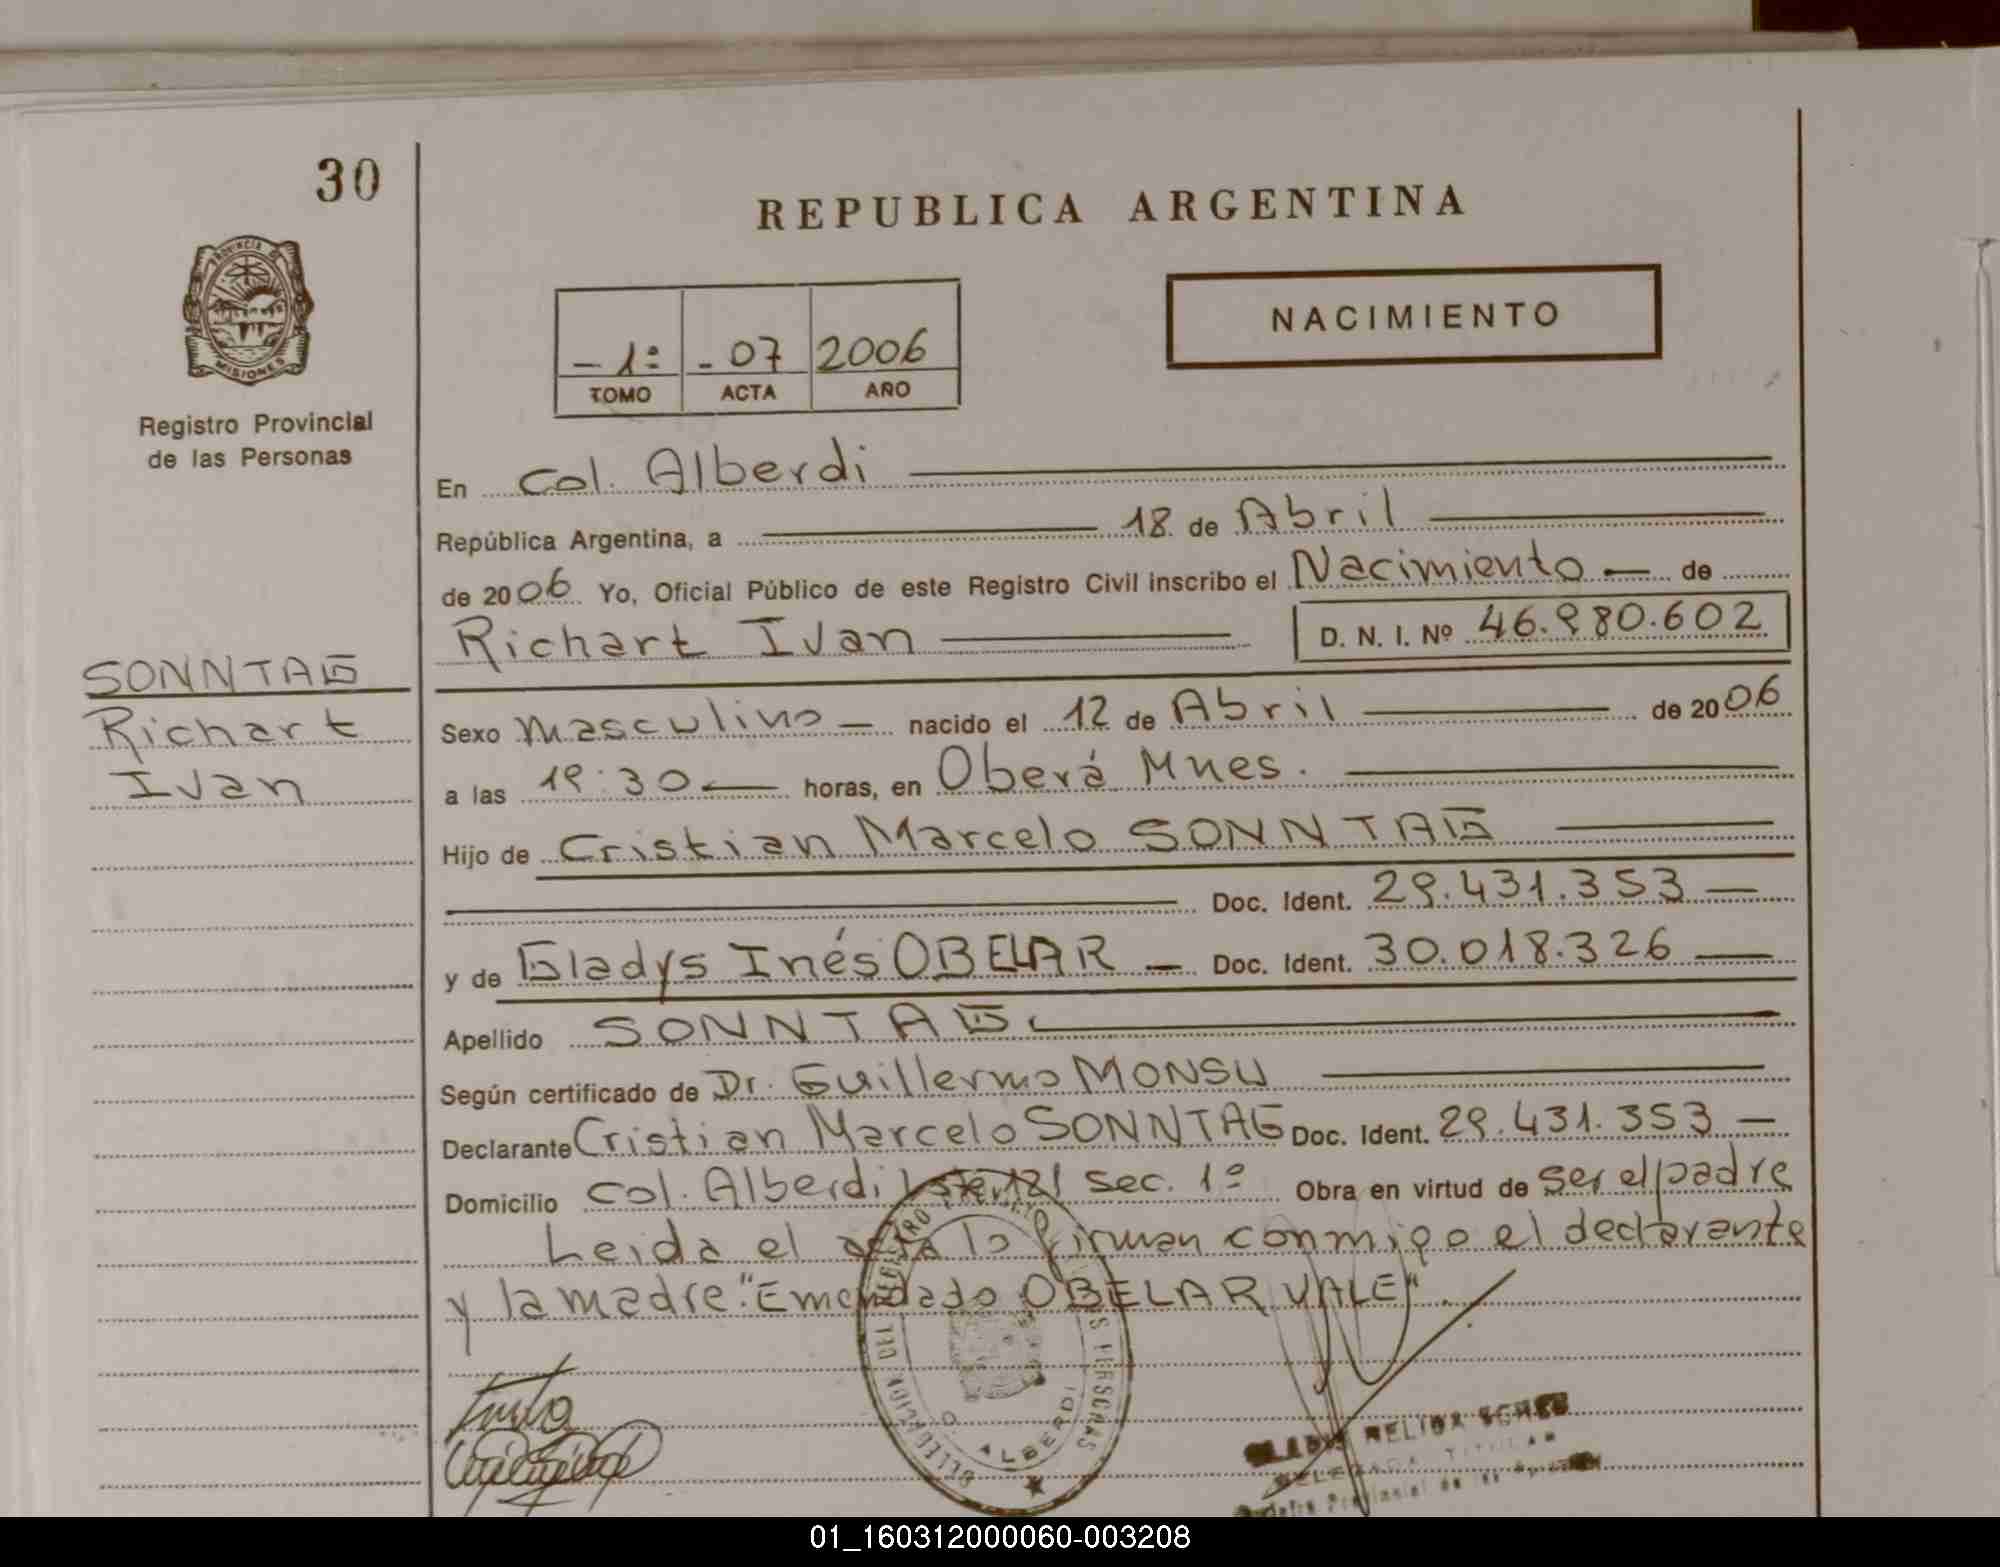 30
REPUBLICA ARGENTINA
PROVINCIA DE
MISIONES
NACIMIENTO
- 1ª - 07 2006
TOMO ACTA AÑO
Registro Provincial
de las Personas
En Col. Alberdi
República Argentina, a 18 de Abril
de 2006 Yo, Oficial Público de este Registro Civil inscribo el Nacimiento — de
Richart Ivan D. N. I. Nº 46.980.602
SONNTAG
Richart
Ivan
Sexo Masculino — nacido el 12 de Abril de 2006
a las 19:30 — horas, en Oberá Mnes.
Hijo de Cristian Marcelo SONNTAG
Doc. Ident. 29.431.353 —
y de Gladys Inés OBELAR — Doc. Ident. 30.018.326 —
Apellido SONNTAG
Según certificado de Dr. Guillermo MONSU
Declarante Cristian Marcelo SONNTAG Doc. Ident. 29.431.353 —
Domicilio Col. Alberdi 121 Sec. 1º Obra en virtud de ser el padre
Leida el acta la firman conmigo el declarante
y la madre. "Emendado OBELAR VALE".
DELEGACION DEL REGISTRO PERSONAS
ALBERDI
NELIDA
TITULAR
Provincial de las
01_160312000060-003208